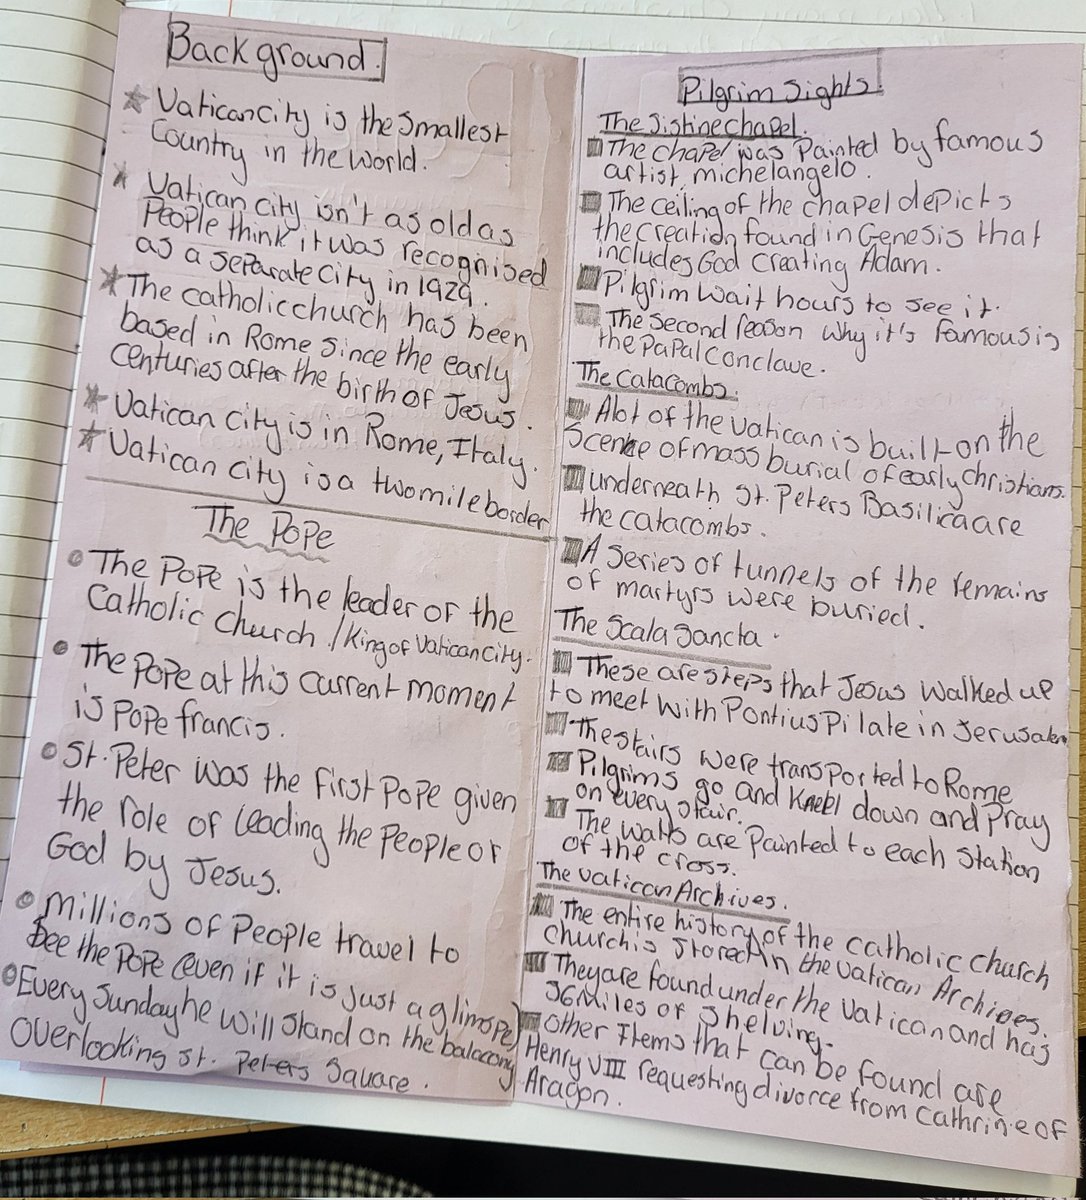 Background.
Vatican City is the smallest
Country in the World.
Vatican City isn't as old as
People think it was recognised
as a separate city in 1929.
The catholic church has been
based in Rome since the early
centuries after the birth of Jesus.
Vatican City is in Rome, Italy.
Vatican City is a two mile border
The Pope
The Pope is the leader of the
Catholic Church / King of Vatican City.
The Pope at this current moment
is Pope francis.
St. Peter was the first Pope given
the role of leading the People or
God by Jesus.
Millions of People travel to
see the Pope (even if it is just a glimspe)
Every Sunday he will stand on the balacony
overlooking St. Peters Square.
Pilgrim Sights.
The Sistine chapel.
The chapel was Painted by famous
artist, michelangelo.
The ceiling of the chapel depicts
the creation found in Genesis that
includes God Creating Adam.
Pilgrim wait hours to see it.
The second reason why it's famous is
the Papal Conclave.
The Catacombs.
Alot of the Vatican is built on the
Scene of mass burial of early christians.
underneath St. Peters Basilica are
the catacombs.
A series of tunnels of the remains
of martyrs were buried.
The Scala Sancta.
These are steps that Jesus walked up
to meet with Pontius Pilate in Jerusalem
The stairs were transported to Rome
Pilgrims go and Kneel down and Pray
on every stair.
The walls are Painted to each Station
of the cross.
The Vatican Archives.
The entire history of the catholic church
church is stored in the Vatican Archives.
They are found under the Vatican and has
56 Miles of shelving.
other Items that can be found are
Henry VIII requesting divorce from Cathrine of
Aragon.